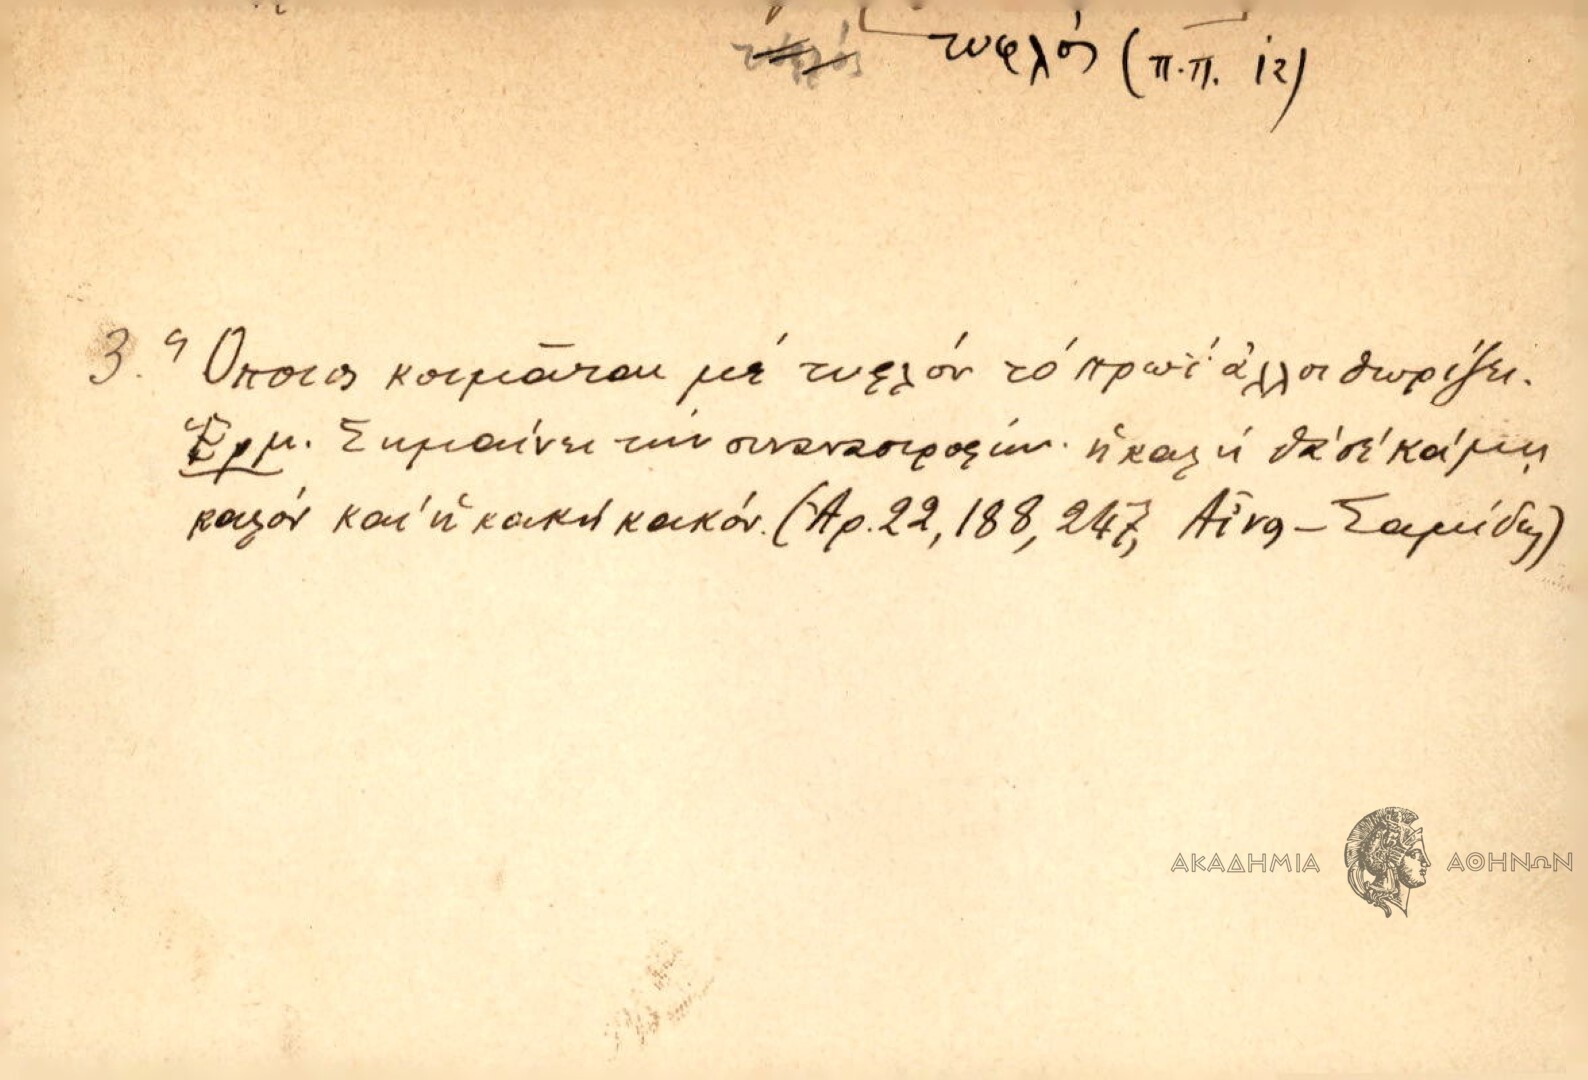 τυφλός τυφλός (π.π. 12)
3. Ὅποιος κοιμᾶται μέ τυφλόν τό πρωΐ ἀλλοιθωρίζει.
Ἑρμ. Σημαίνει τήν συναναστροφήν. ἡ καλή θά σέ κάμῃ
καλόν καί ἡ κακή κακόν. (Ἀρ. 22, 188, 247, Αἶνο – Σαμίδης)
ΑΚΑΔΗΜΙΑ ΑΘΗΝΩΝ